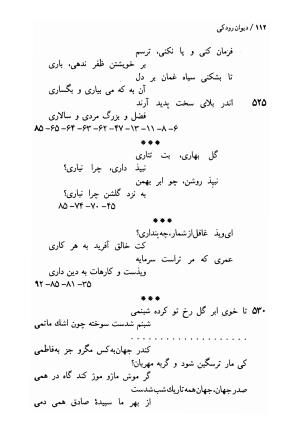 ۱۱۲ / دیوان رودکی
فرمان کنی و یا نکنی، ترسم
بر خویشتن ظفر ندهی، باری
تا بشکنی سپاه غمان بر دل
آن به که می بیاری و بگساری
۵۲۵ اندر بلای سخت پدید آرند
فضل و بزرگ مردی و سالاری
۶- ۸- ۱۱- ۱۳- ۴۷- ۶۲- ۶۳- ۶۴- ۶۵- ۸۵
***
گل بهاری، بت تتاری
نبیذ داری، چرا نیاری؟
نبیذ روشن، چو ابر بهمن
به نزد گلشن چرا نباری؟
۴۵- ۷۰- ۷۴- ۸۵
***
ای‌وید غافل‌از شمار، چه پنداری؟
کت خالق آفرید به هر کاری
عمری که مر تراست سرمایه
ویذست و کارهات به دین داری
۳۵- ۸۱- ۸۵- ۹۲
***
۵۳۰ تا خوی ابر گل رخ تو کرده شبنمی
شبنم شدست سوخته چون اشك ماتمی
. . . . . . . . . . . . . . . . . . . . .
کندر جهان به‌کس مگرو جز به‌فاطمی
کی مار ترسگین شود و گربه مهربان؟
گر موش ماژو موژ کند گاه در همی
صدر جهان، جهان همه تاریك شب شدست
از بهر ما سپیدهٔ صادق همی دمی